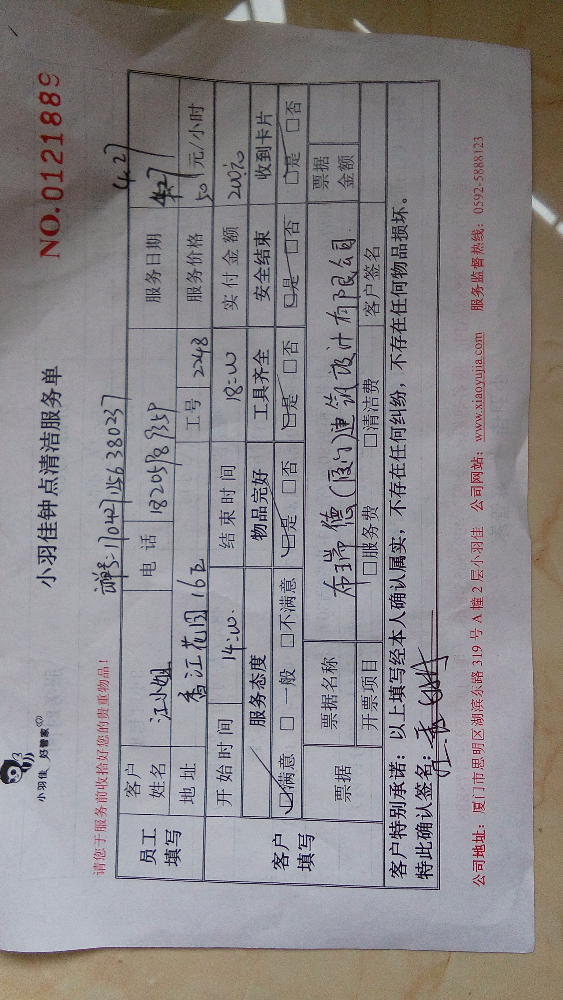 小羽佳 好管家
小羽佳钟点清洁服务单
NO.0121889
请您于服务前收拾好您的贵重物品！
4.27
员工填写
客户姓名 江小姐 电话 18205989359 服务日期 4.27
地址 香江花园 工号 2248 服务价格 50 元/小时
客户填写
开始时间 14:00 结束时间 18:00 实付金额 200元
服务态度 物品完好 工具齐全 安全结束 收到卡片
□满意 □一般 □不满意 □是 □否 □是 □否 □是 □否 □是 □否
票据 票据名称 布瑞德(厦门)建筑设计有限公司 票据金额
开票项目 □服务费 □清洁费 客户签名
客户特别承诺：以上填写经本人确认属实，不存在任何纠纷，不存在任何物品损坏。
特此确认签名：
公司地址：厦门市思明区湖滨东路 319 号 A 幢 2 层小羽佳 公司网站：www.xiaoyujia.com 服务监督热线：0592-5888123